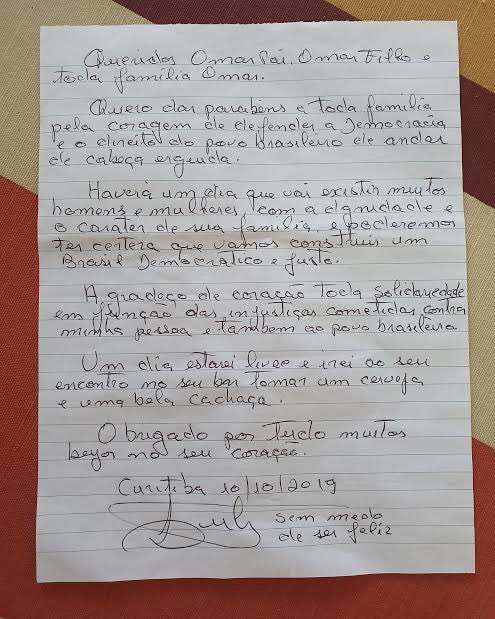 Queridos Omar Pai, Omar Filho e
toda família Omar.
Quero dar parabens a toda familia
pela coragem de defender a Democracia
e o direito do povo brasileiro de andar
de cabeça erguida.
Haverá um dia que vai existir muitos
homens e mulheres, com a dignidade e
o carater de sua família, e poderemos
ter certeza que vamos construir um
Brasil Democrático e justo.
Agradeço de coração toda solidariedade
em função das injustiças cometidas contra
minha pessoa e também ao povo brasileiro.
Um dia estarei livre e irei ao seu
encontro no seu bar tomar um cerveja
e uma bela cachaça.
Obrigado por tudo muitos
beijos no seu coração.
Curitiba 10/10/2019
Lula sem medo
de ser feliz